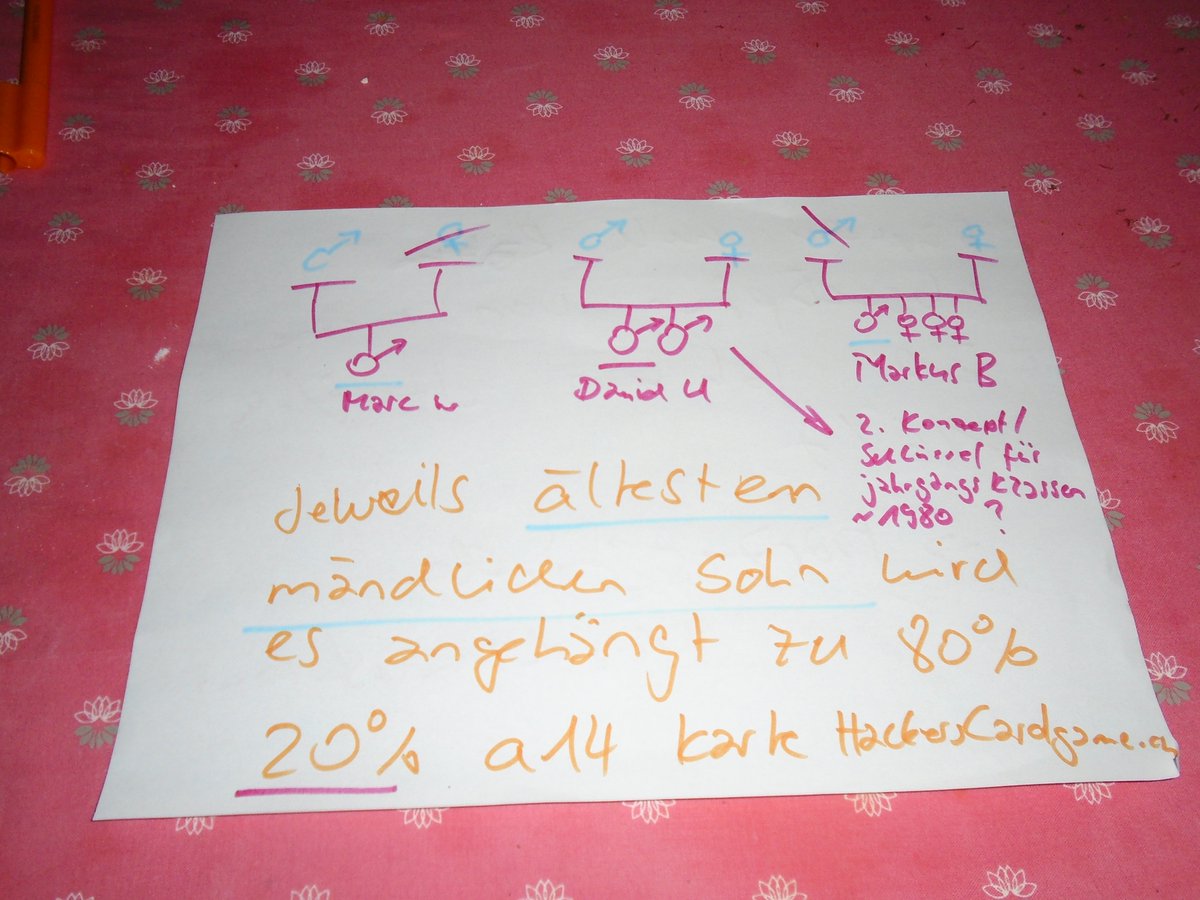 Marc W
Daniel U
Markus B
2. Konzept/
Schlüssel für
jahrgangsklassen
~1980 ?
Jeweils ältesten
mändlichen Sohn wird
es angehängt zu 80%
20% a14 karte HackersCardgame.ch